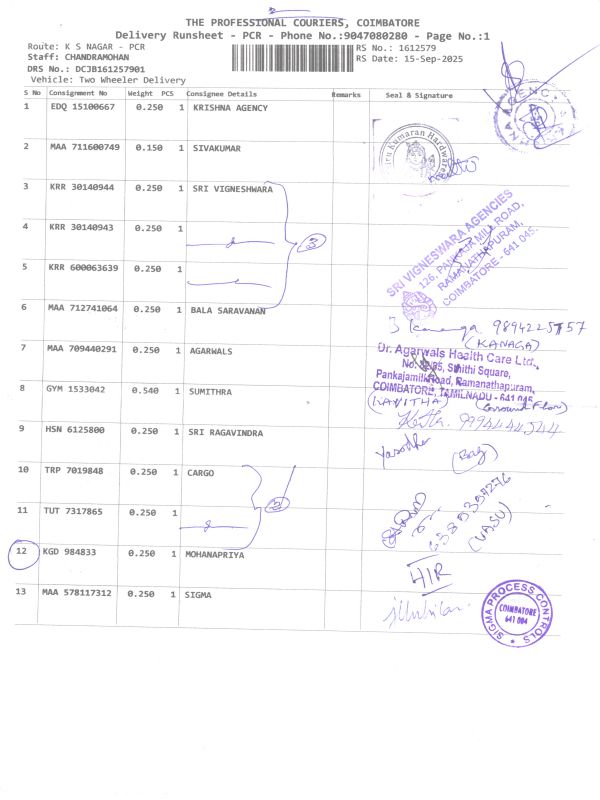 THE PROFESSIONAL COURIERS, COIMBATORE
Delivery Runsheet - PCR - Phone No.:9047080280 - Page No.:1
Route: K S NAGAR - PCR
RS No.: 1612579
Staff: CHANDRAMOHAN
RS Date: 15-Sep-2025
DRS No.: DCJB161257901
Vehicle: Two Wheeler Delivery
S No Consignment No Weight PCS Consignee Details Remarks Seal & Signature
1 EDQ 15100667 0.250 1 KRISHNA AGENCY
2 MAA 711600749 0.150 1 SIVAKUMAR
Kumaran Hardware
3 KRR 30140944 0.250 1 SRI VIGNESHWARA
4 KRR 30140943 0.250 1
3
SRI VIGNESWARA AGENCIES
126, PANKAJA MILL ROAD,
RAMANATHAPURAM,
COIMBATORE - 641 045.
5 KRR 600063639 0.250 1
6 MAA 712741064 0.250 1 BALA SARAVANAN
9894225757
(KANAGA)
7 MAA 709440291 0.250 1 AGARWALS
Dr. Agarwals Health Care Ltd.,
Sthithi Square,
Pankajamilk Road, Ramanathapuram,
COIMBATORE, TAMILNADU - 641 045
8 GYM 1533042 0.540 1 SUMITHRA
(KAVITHA) (Ground Floor)
9 HSN 6125800 0.250 1 SRI RAGAVINDRA
Yasodha (Bag)
10 TRP 7019848 0.250 1 CARGO
11 TUT 7317865 0.250 1
2
6385357276
(VASU)
12 KGD 984833 0.250 1 MOHANAPRIYA
HIR
13 MAA 578117312 0.250 1 SIGMA
SIGMA PROCESS CONTROLS
COIMBATORE
641 004